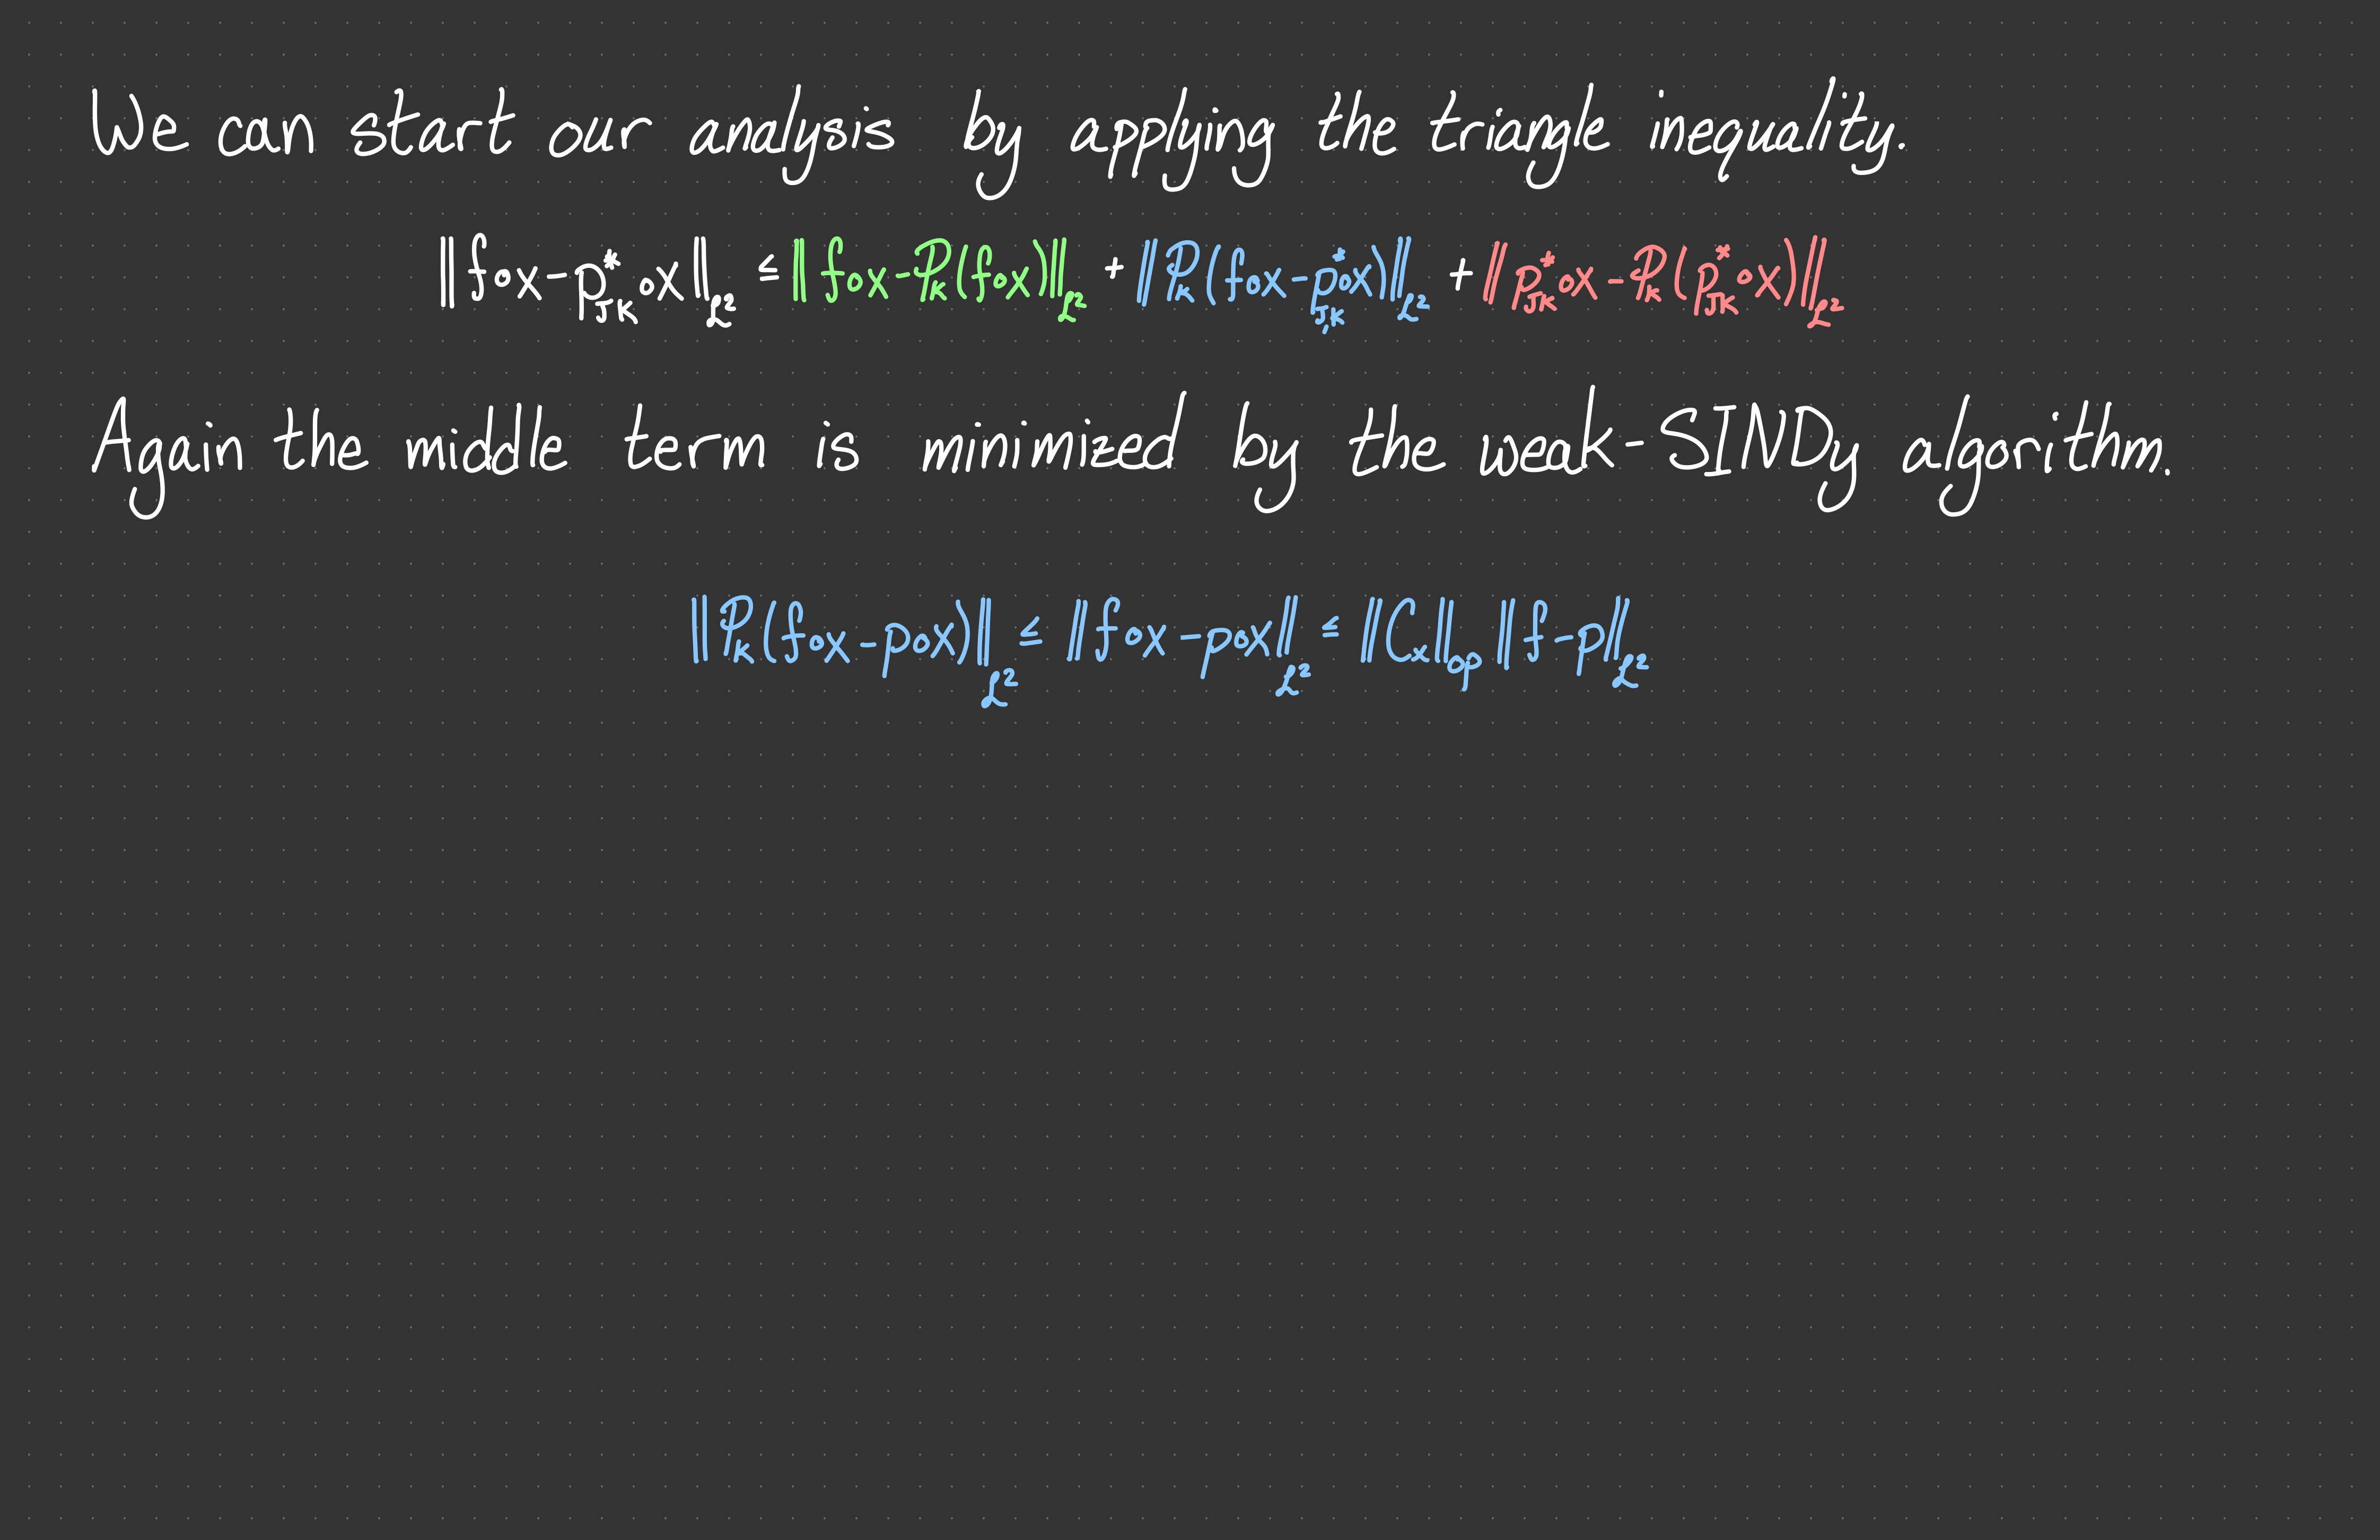 We can start our analysis by applying the triangle inequality.
‖f∘x − p*_{JK}∘x‖_{L²} ≤ ‖f∘x − P_K(f∘x)‖_{L²} + ‖P_K(f∘x − p*_{J,K}∘x)‖_{L²} + ‖p*_{JK}∘x − P_K(p*_{JK}∘x)‖_{L²}
Again the middle term is minimized by the weak-SINDy algorithm.
‖P_K(f∘x − p∘x)‖_{L²} ≤ ‖f∘x − p∘x‖_{L²} ≤ ‖C_x‖_{op} ‖f − p‖_{L²}